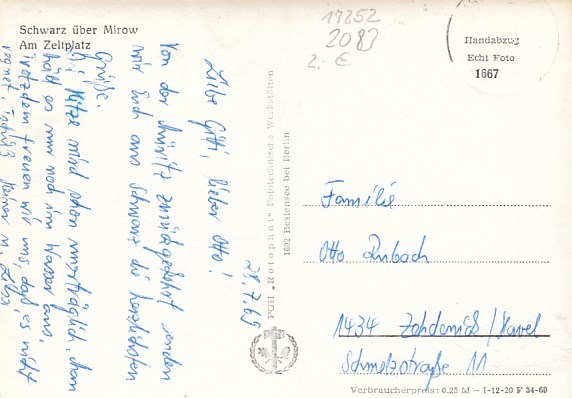 Schwarz über Mirow
Am Zeltplatz
17252
2083
2,- €
Handabzug
Echt Foto
1667
28.7.69
Liebe Gitti, lieber Otto!
Von der Müritz zurückgekehrt senden
wir Euch aus Schwarz die herzlichsten
Grüße.
Die Hitze wird schon unerträglich, man
hält es nur noch im Wasser aus,
trotzdem freuen wir uns, daß es nicht
regnet.
PGH „Rotophot“ Fototechnische Werkstätten
1602 Bestensee bei Berlin
Familie
Otto Rubach
1434 Zehdenick/Havel
Schmelzstraße 11
Verbraucherpreis: 0,25 M – I-12-20 F 34-69